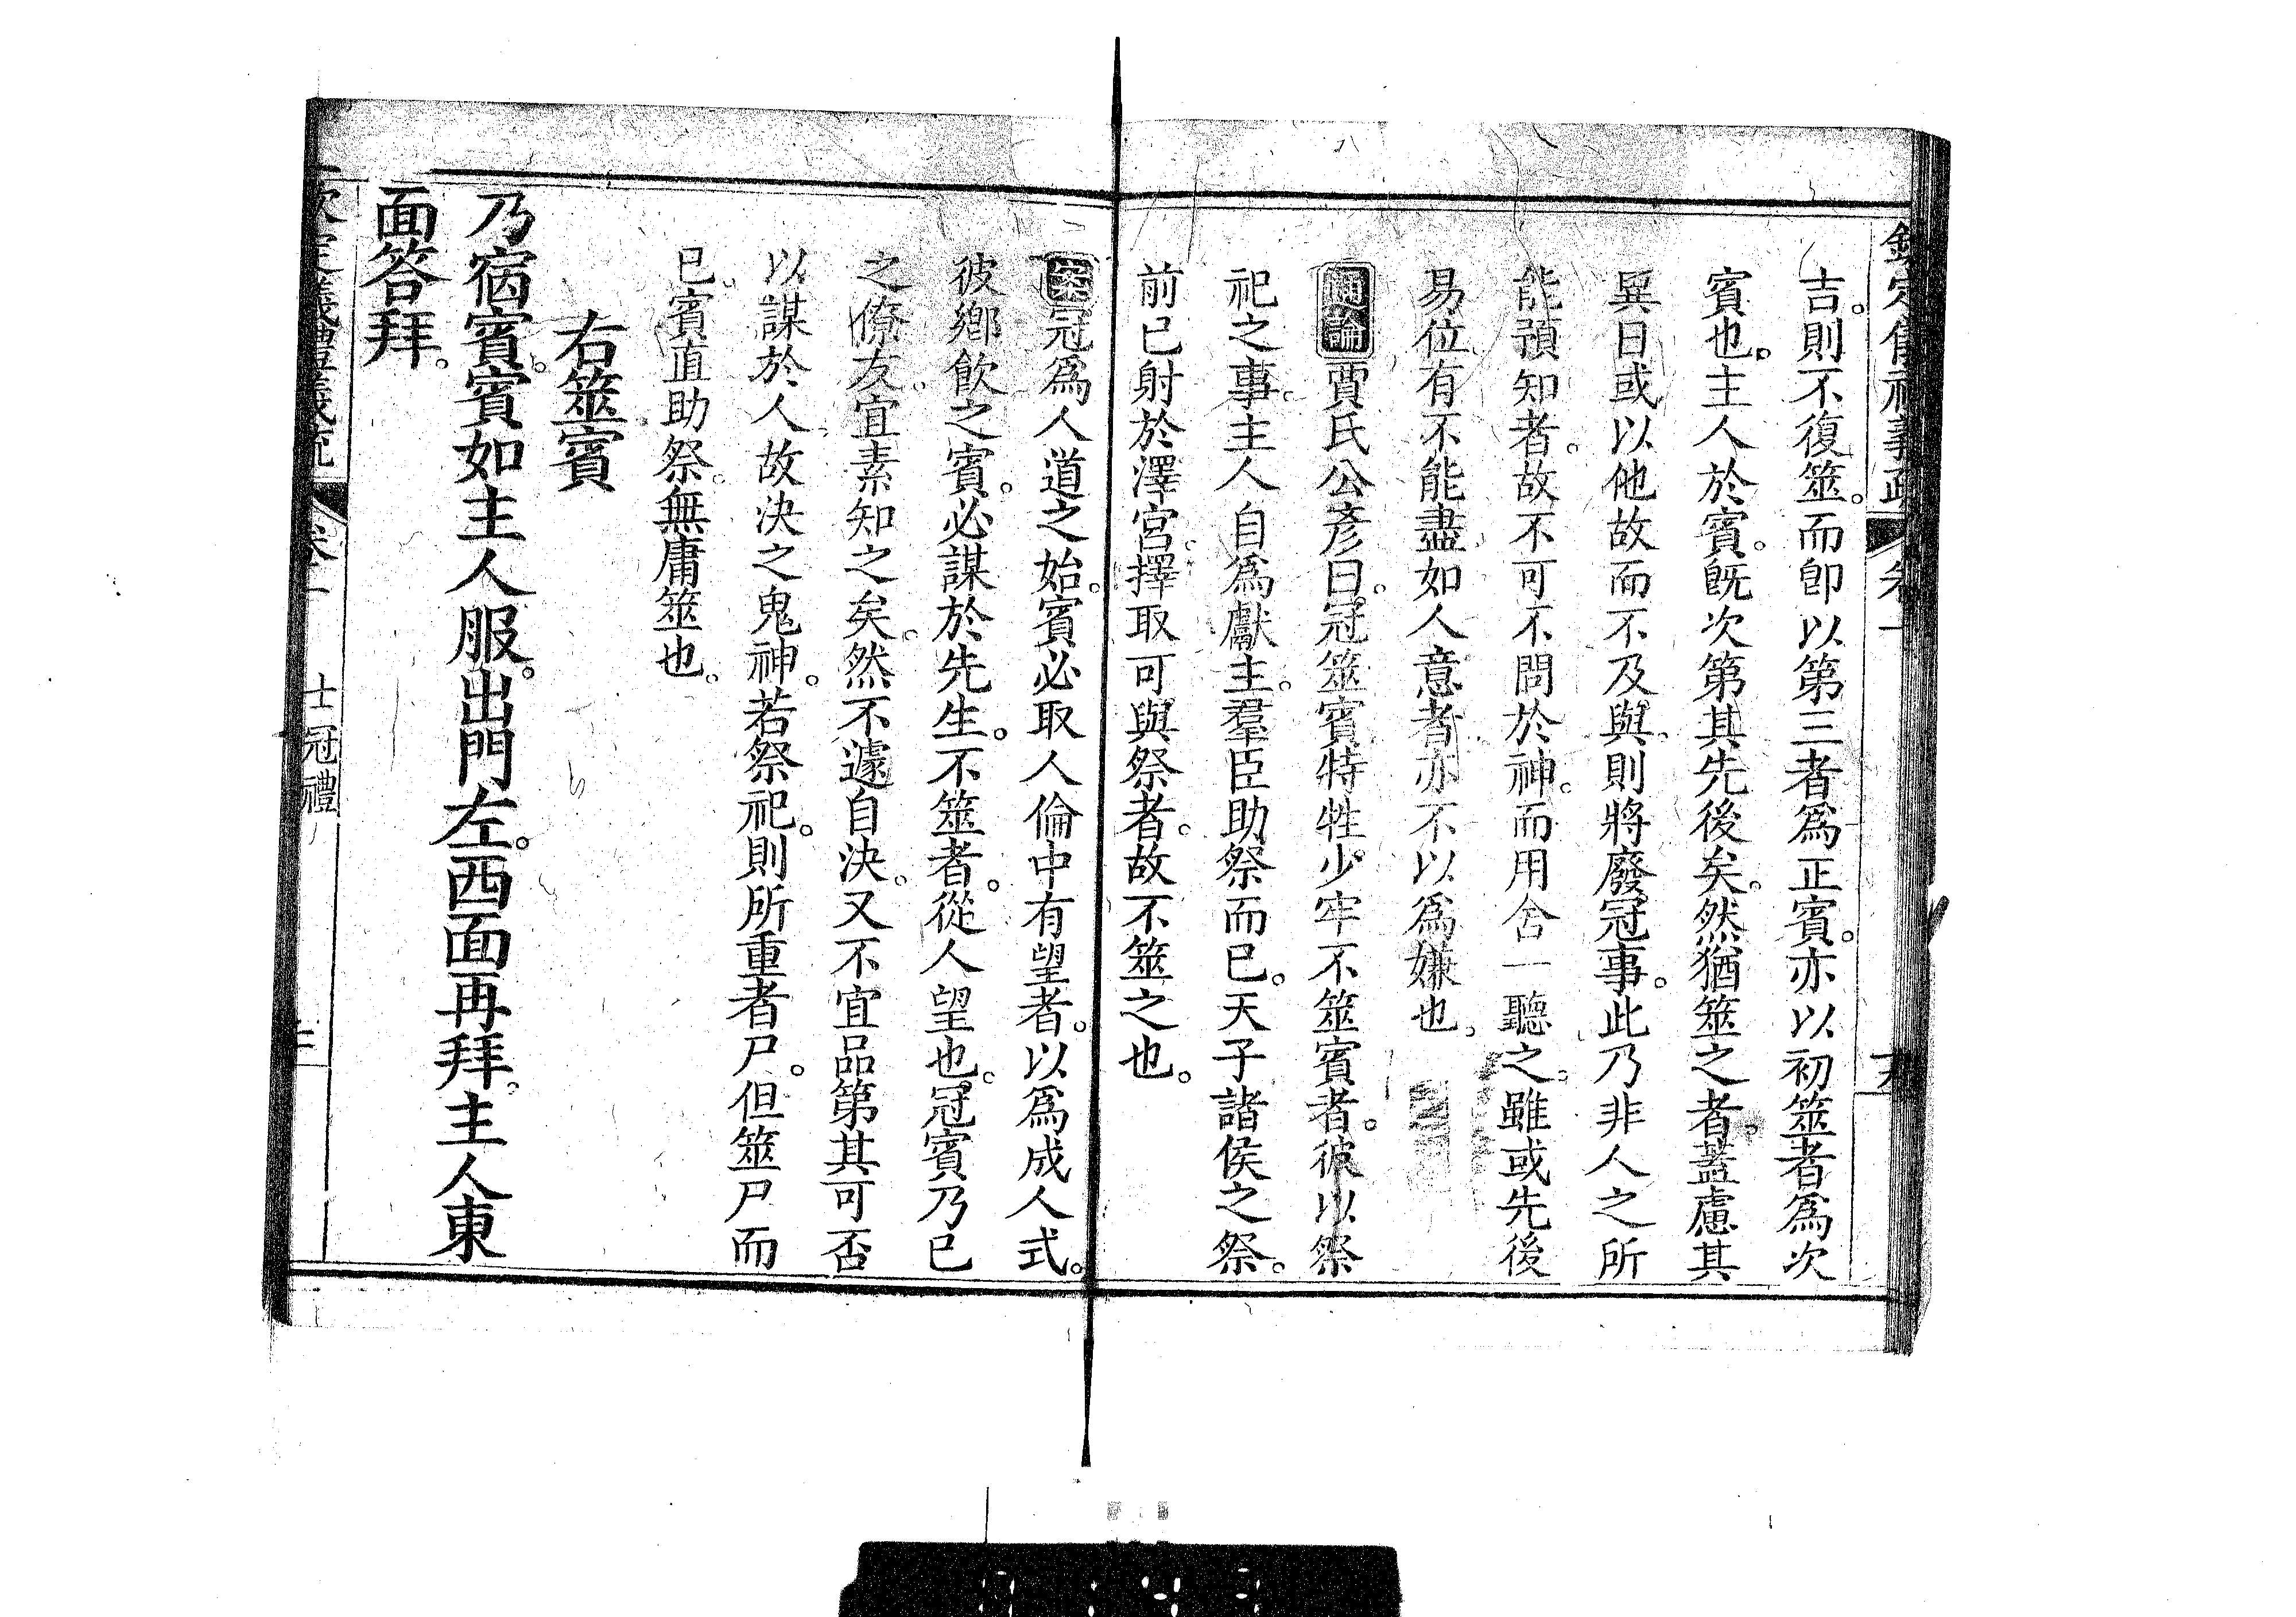 欽定儀禮義疏 卷一
吉。則不復筮。而卽以第三者爲正賓。亦以初筮者爲次
賓也。主人於賓。旣次第其先後矣。然猶筮之者。蓋慮其
異日或以他故而不及與。則將廢冠事。此乃非人之所
能預知者。故不可不問於神。而用舍一聽之。雖或先後
易位。有不能盡如人意者。亦不以爲嫌也。
通論賈氏公彥曰。冠筮賓。特牲少牢不筮賓者。彼以祭
祀之事。主人自爲獻主。羣臣助祭而已。天子諸侯之祭。
前已射於澤宮。擇取可與祭者。故不筮之也。
案冠爲人道之始。賓必取人倫中有望者。以爲成人式。
彼鄉飮之賓。必謀於先生。不筮者。從人望也。冠賓乃已
之僚友。宜素知之矣。然不遽自決。又不宜品第其可否
以謀於人。故決之鬼神。若祭祀。則所重者尸。但筮尸而
已。賓直助祭。無庸筮也。
右筮賓
乃宿賓。賓如主人服。出門左。西面再拜。主人東
面答拜。
欽定儀禮義疏 卷一 士冠禮